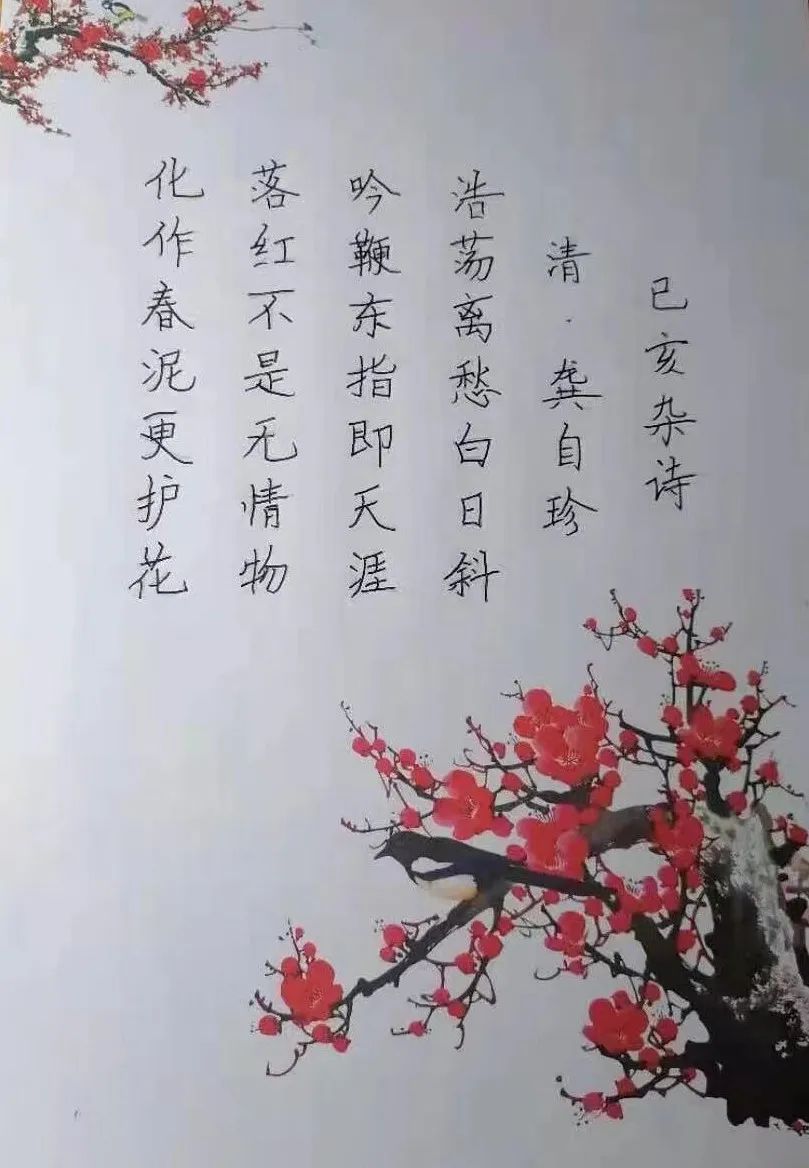 己亥杂诗
清·龚自珍
浩荡离愁白日斜
吟鞭东指即天涯
落红不是无情物
化作春泥更护花